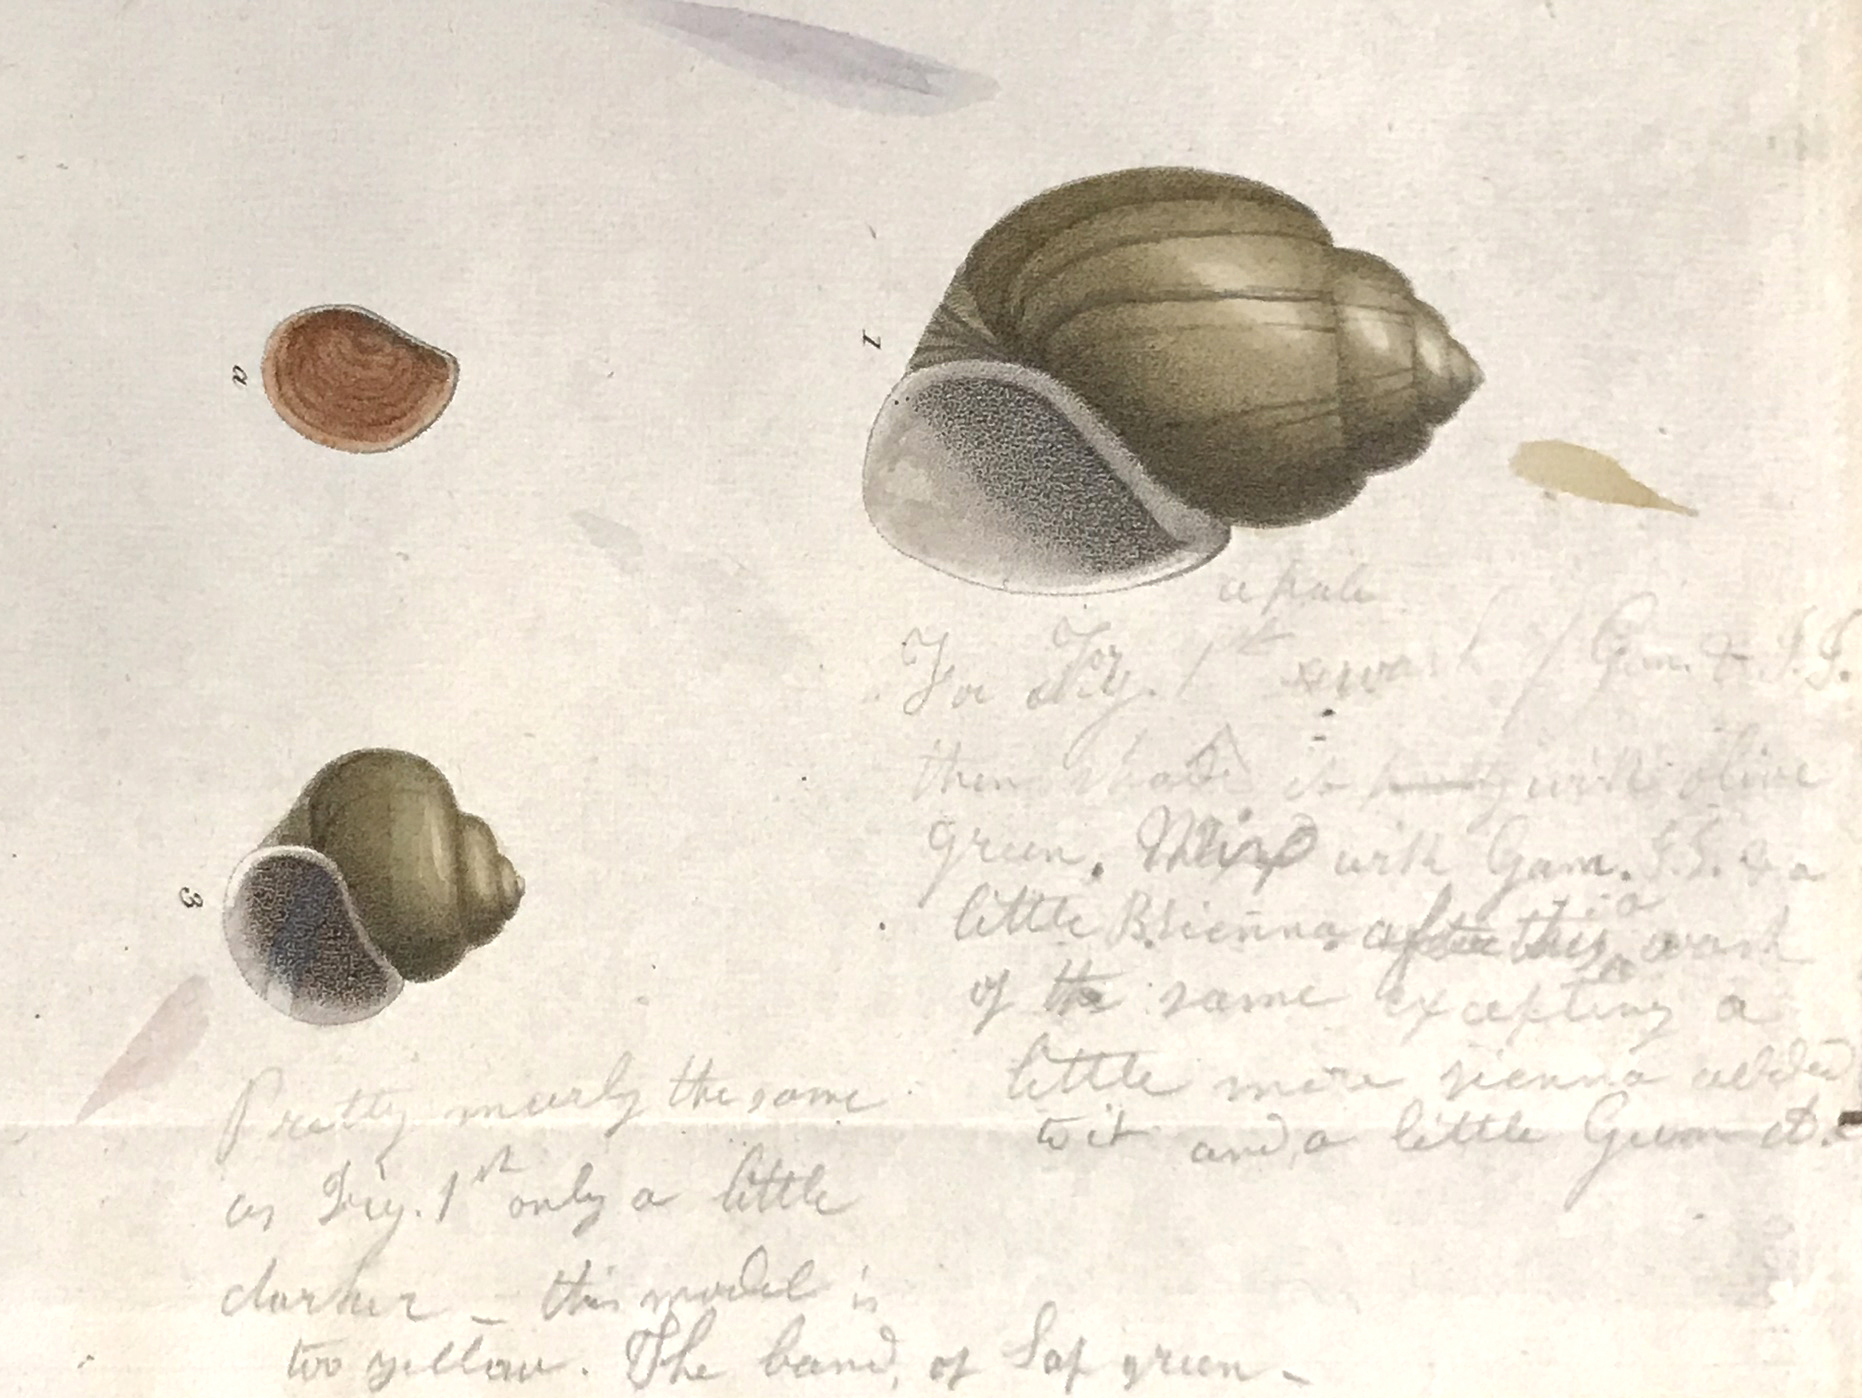 a
1
a pale
For Fig. 1st a wash of Gam. & I.I.
then shade it with olive
green. Mix with Gam. & a
little B. sienna after this a wash
of the same excepting a
little more sienna added
to it and a little Gum
3
Pretty nearly the same
as Fig. 1st only a little
darker — this model is
too yellow. The band, of Sap green —